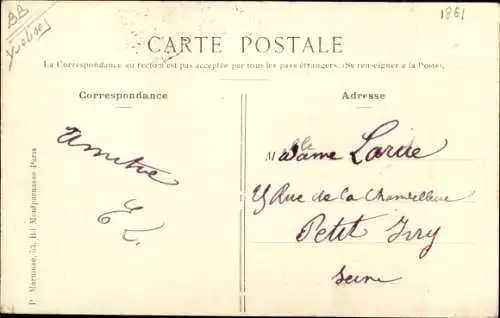 BB
1861
CARTE POSTALE
La Correspondance au recto n'est pas acceptée par tous les pays étrangers. (Se renseigner à la Poste).
Correspondance
Adresse
Madame Larue
Rue de la
Petit Ivry
Seine
P. Marmuse, 53, Bd Montparnasse Paris